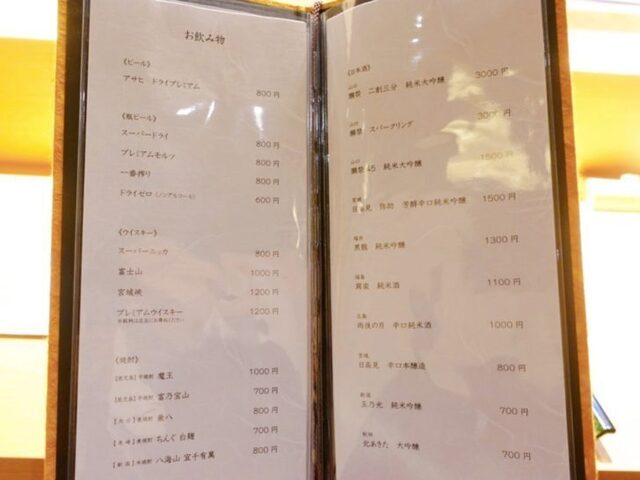 お飲み物
《ビール》
アサヒ ドライプレミアム 800円
《瓶ビール》
スーパードライ 800円
プレミアムモルツ 800円
一番搾り 800円
ドライゼロ(ノンアルコール) 600円
《ウイスキー》
スーパーニッカ 800円
富士山 1000円
宮城峡 1200円
プレミアムウイスキー 1200円
※銘柄は店主にお尋ねください
《焼酎》
【鹿児島】芋焼酎 魔王 1000円
【鹿児島】芋焼酎 富乃宝山 700円
麦焼酎 兼八 800円
【長崎】麦焼酎 ちんぐ 白麹 700円
【新潟】米焼酎 八海山 宜有千萬 800円
《日本酒》
山口
獺祭 二割三分 純米大吟醸 3000円
山口
獺祭 スパークリング 3000円
山口
獺祭 45 純米大吟醸 1500円
宮城
日高見 弥助 芳醇辛口純米吟醸 1500円
福井
黒龍 純米吟醸 1300円
福島
純米酒 1100円
広島
雨後の月 辛口純米酒 1000円
宮城
日高見 辛口本醸造 800円
新潟
玉乃光 純米吟醸 700円
秋田
北あきた 大吟醸 700円